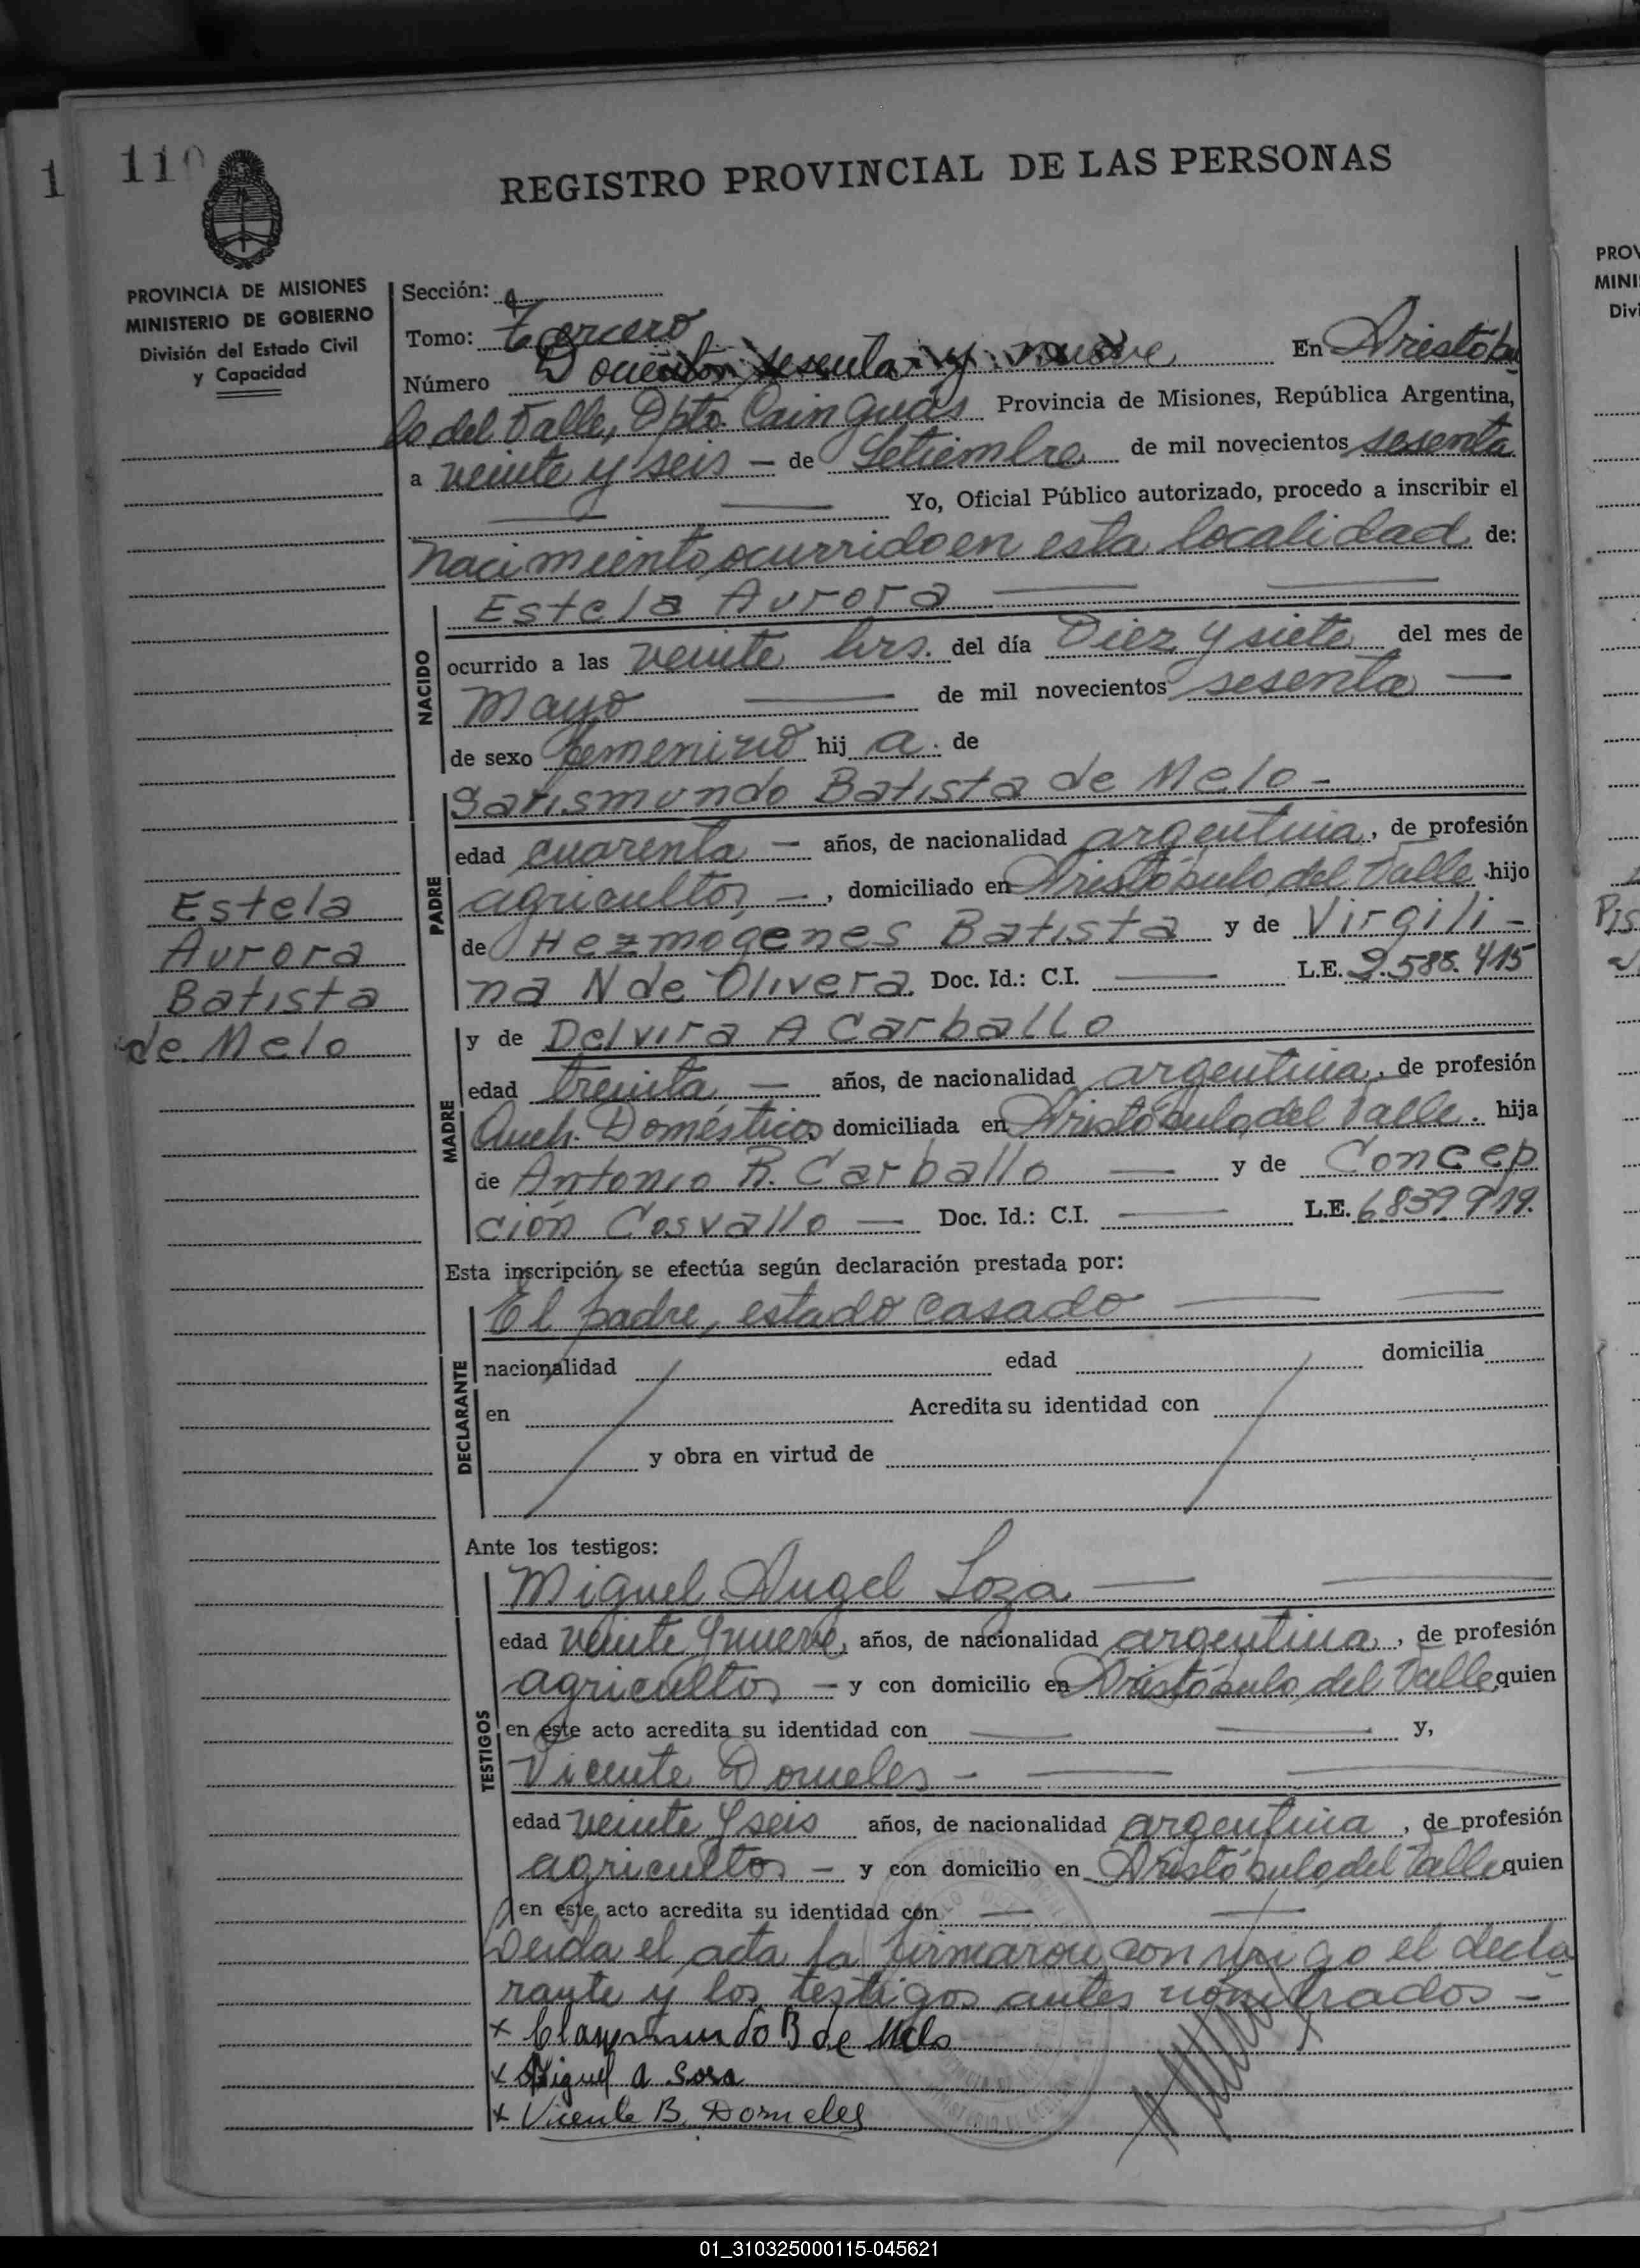 1
110
REGISTRO PROVINCIAL DE LAS PERSONAS
PROVINCIA DE MISIONES
MINISTERIO DE GOBIERNO
División del Estado Civil
y Capacidad
Sección:
Tomo: Tercero
Número Docientos sesenta y nueve En Aristóbu
lo del Valle, Dpto. Cainguás Provincia de Misiones, República Argentina,
a veinte y seis — de Setiembre de mil novecientos sesenta
Yo, Oficial Público autorizado, procedo a inscribir el
nacimiento ocurrido en esta localidad de:
NACIDO
Estela Aurora
ocurrido a las veinte hrs. del día Diez y siete del mes de
Mayo de mil novecientos sesenta
de sexo femenino hij a. de
PADRE
Garismundo Batista de Melo -
edad cuarenta — años, de nacionalidad argentina, de profesión
agricultor —, domiciliado en Aristóbulo del Valle hijo
de Hezmogenes Batista y de Virgili-
na N de Olivera. Doc. Id.: C.I. L.E. 2.588.415
Estela
Aurora
Batista
de Melo
MADRE
y de Delvira A Carballo
edad treinta — años, de nacionalidad argentina, de profesión
Queh. Domésticos domiciliada en Aristóbulo del Valle. hija
de Antonio R. Carballo — y de Concep
ción Cosvallo — Doc. Id.: C.I. L.E. 6.839.919.
Esta inscripción se efectúa según declaración prestada por:
DECLARANTE
El padre, estado casado
nacionalidad edad domicilia
en Acredita su identidad con
y obra en virtud de
Ante los testigos:
TESTIGOS
Miguel Angel Soza
edad veinte y nueve, años, de nacionalidad argentina, de profesión
agricultor — y con domicilio en Aristóbulo del Valle quien
en este acto acredita su identidad con y,
Vicente Dorneles -
edad veinte y seis años, de nacionalidad argentina, de profesión
agricultor — y con domicilio en Aristóbulo del Valle quien
en este acto acredita su identidad con
Leida el acta la firmaron conmigo el decla
rante y los testigos antes nombrados -
x Clarymundo B de Melo
x Miguel A Sosa
x Vicente B. Dorneles
PROV
MINI
Divi
01_310325000115-045621